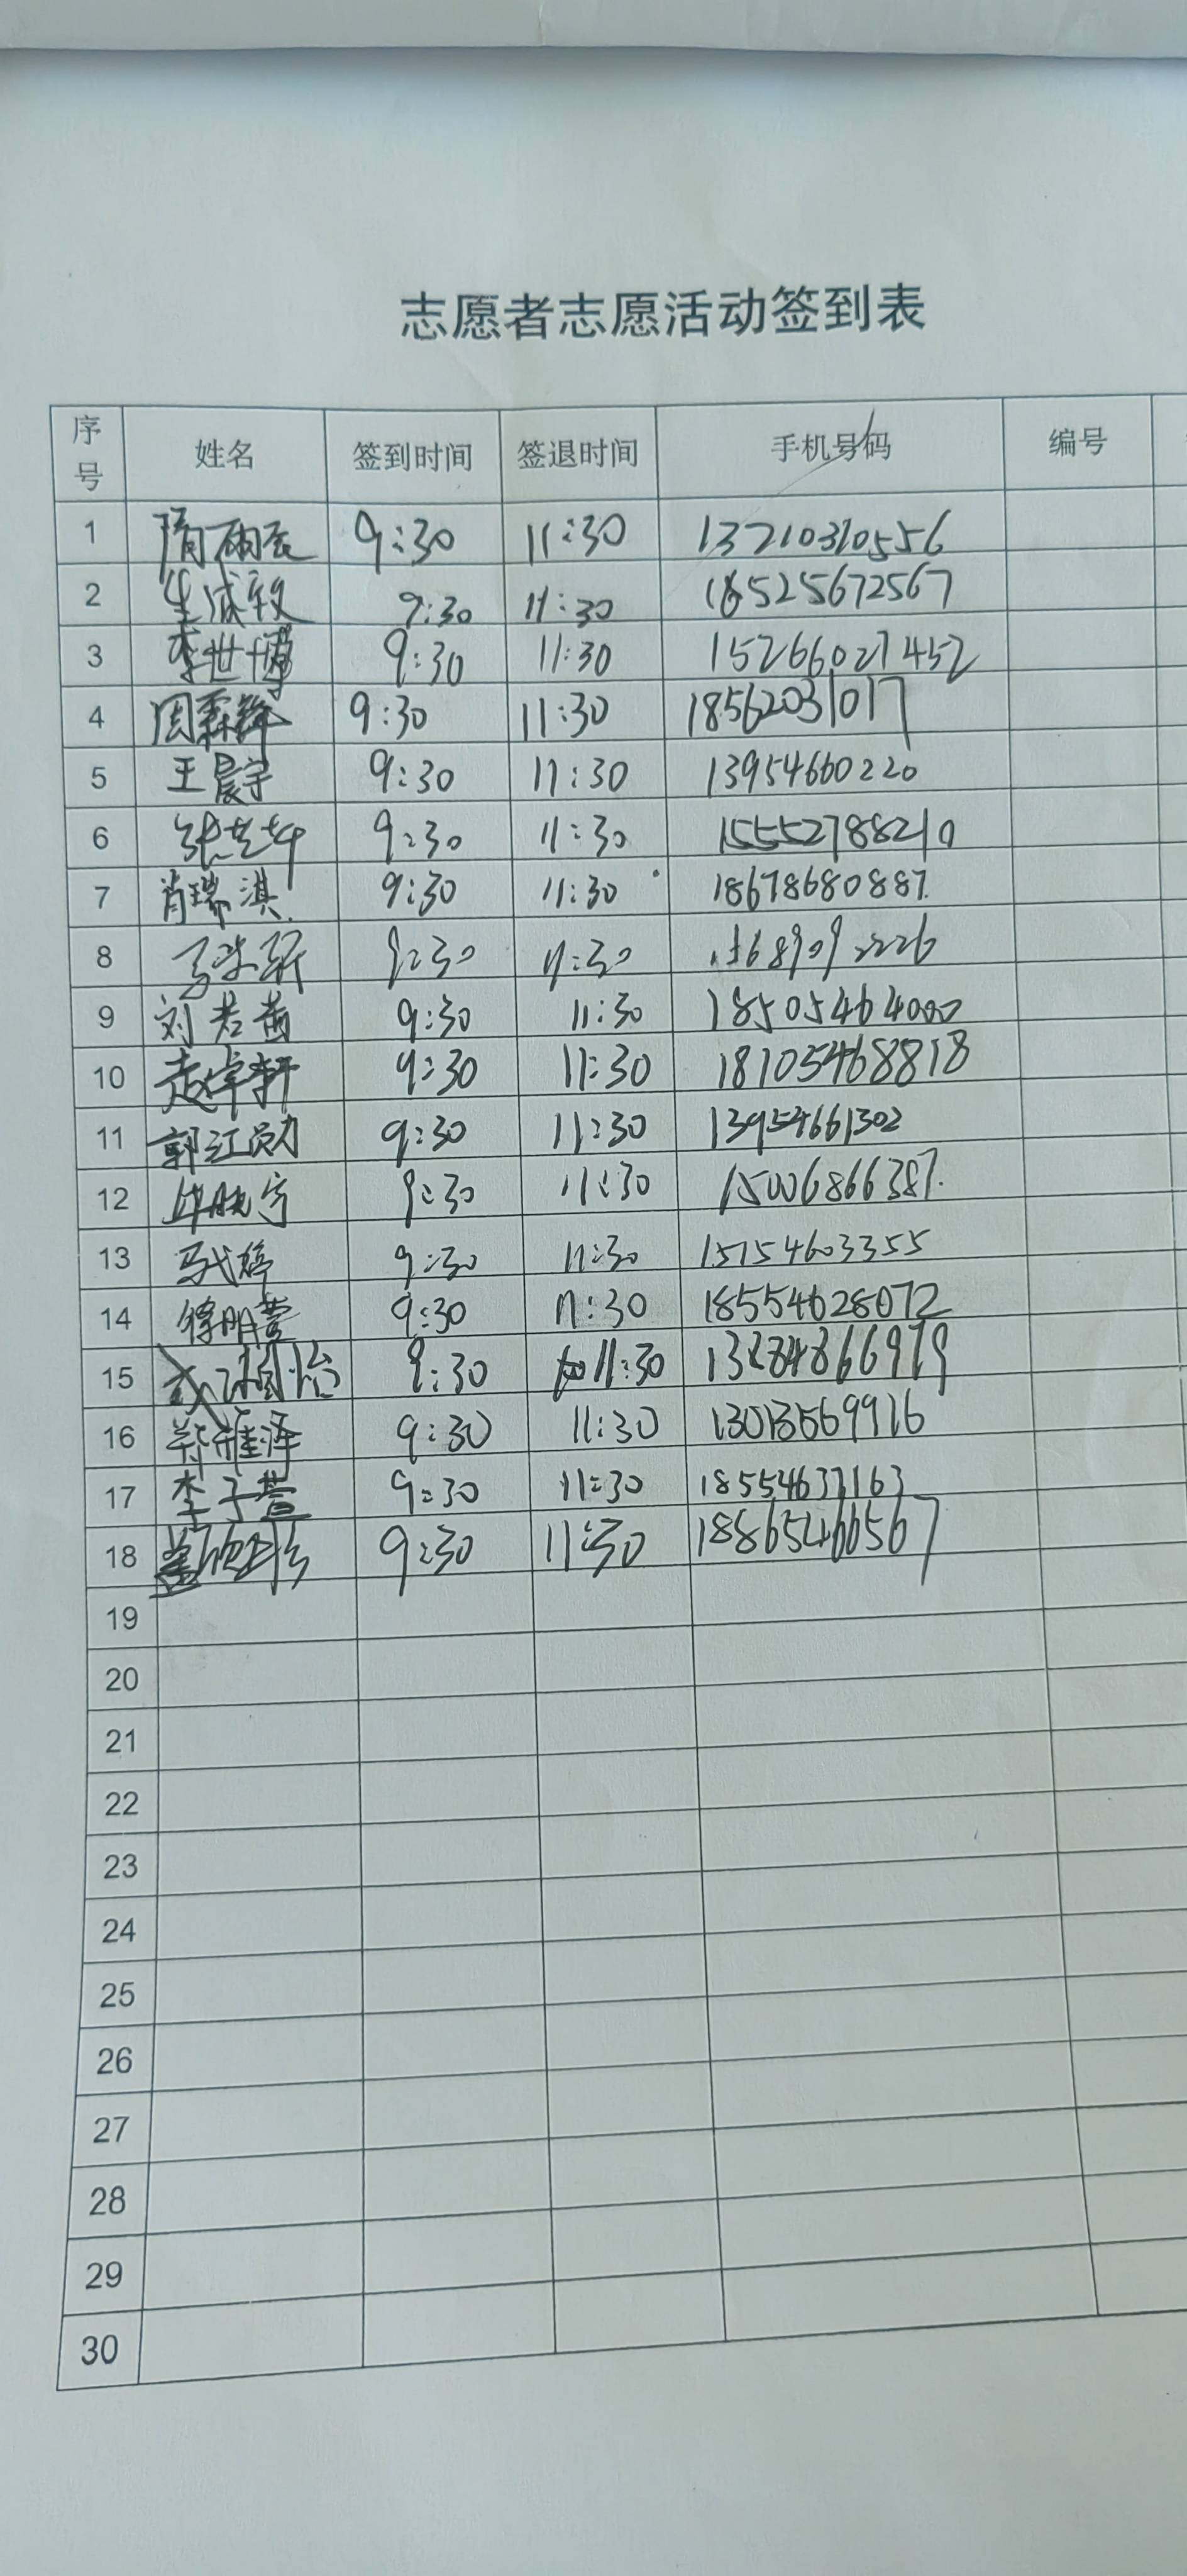 志愿者志愿活动签到表
序号 姓名 签到时间 签退时间 手机号码 编号
1 隋雨辰 9:30 11:30 13210310556
2 9:30 11:30 18525672567
3 李世博 9:30 11:30 15266021452
4 周霖 9:30 11:30 18562031017
5 王晨宇 9:30 11:30 13954660220
6 张芝坤 9:30 11:30 15552788210
7 肖瑞淇 9:30 11:30 18678680887
8 9:30 11:30
9 刘若茜 9:30 11:30 18505464000
10 赵卓轩 9:30 11:30 18105468818
11 郭江勋 9:30 11:30 13954661302
12 9:30 11:30 15006866387
13 9:30 11:30 15154603355
14 徐明萱 9:30 11:30 18554628072
15 怡 9:30 11:30
16 雅泽 9:30 11:30
17 李子萱 9:30 11:30 18554637163
18 盖欣彤 9:30 11:30 18865466567
19
20
21
22
23
24
25
26
27
28
29
30